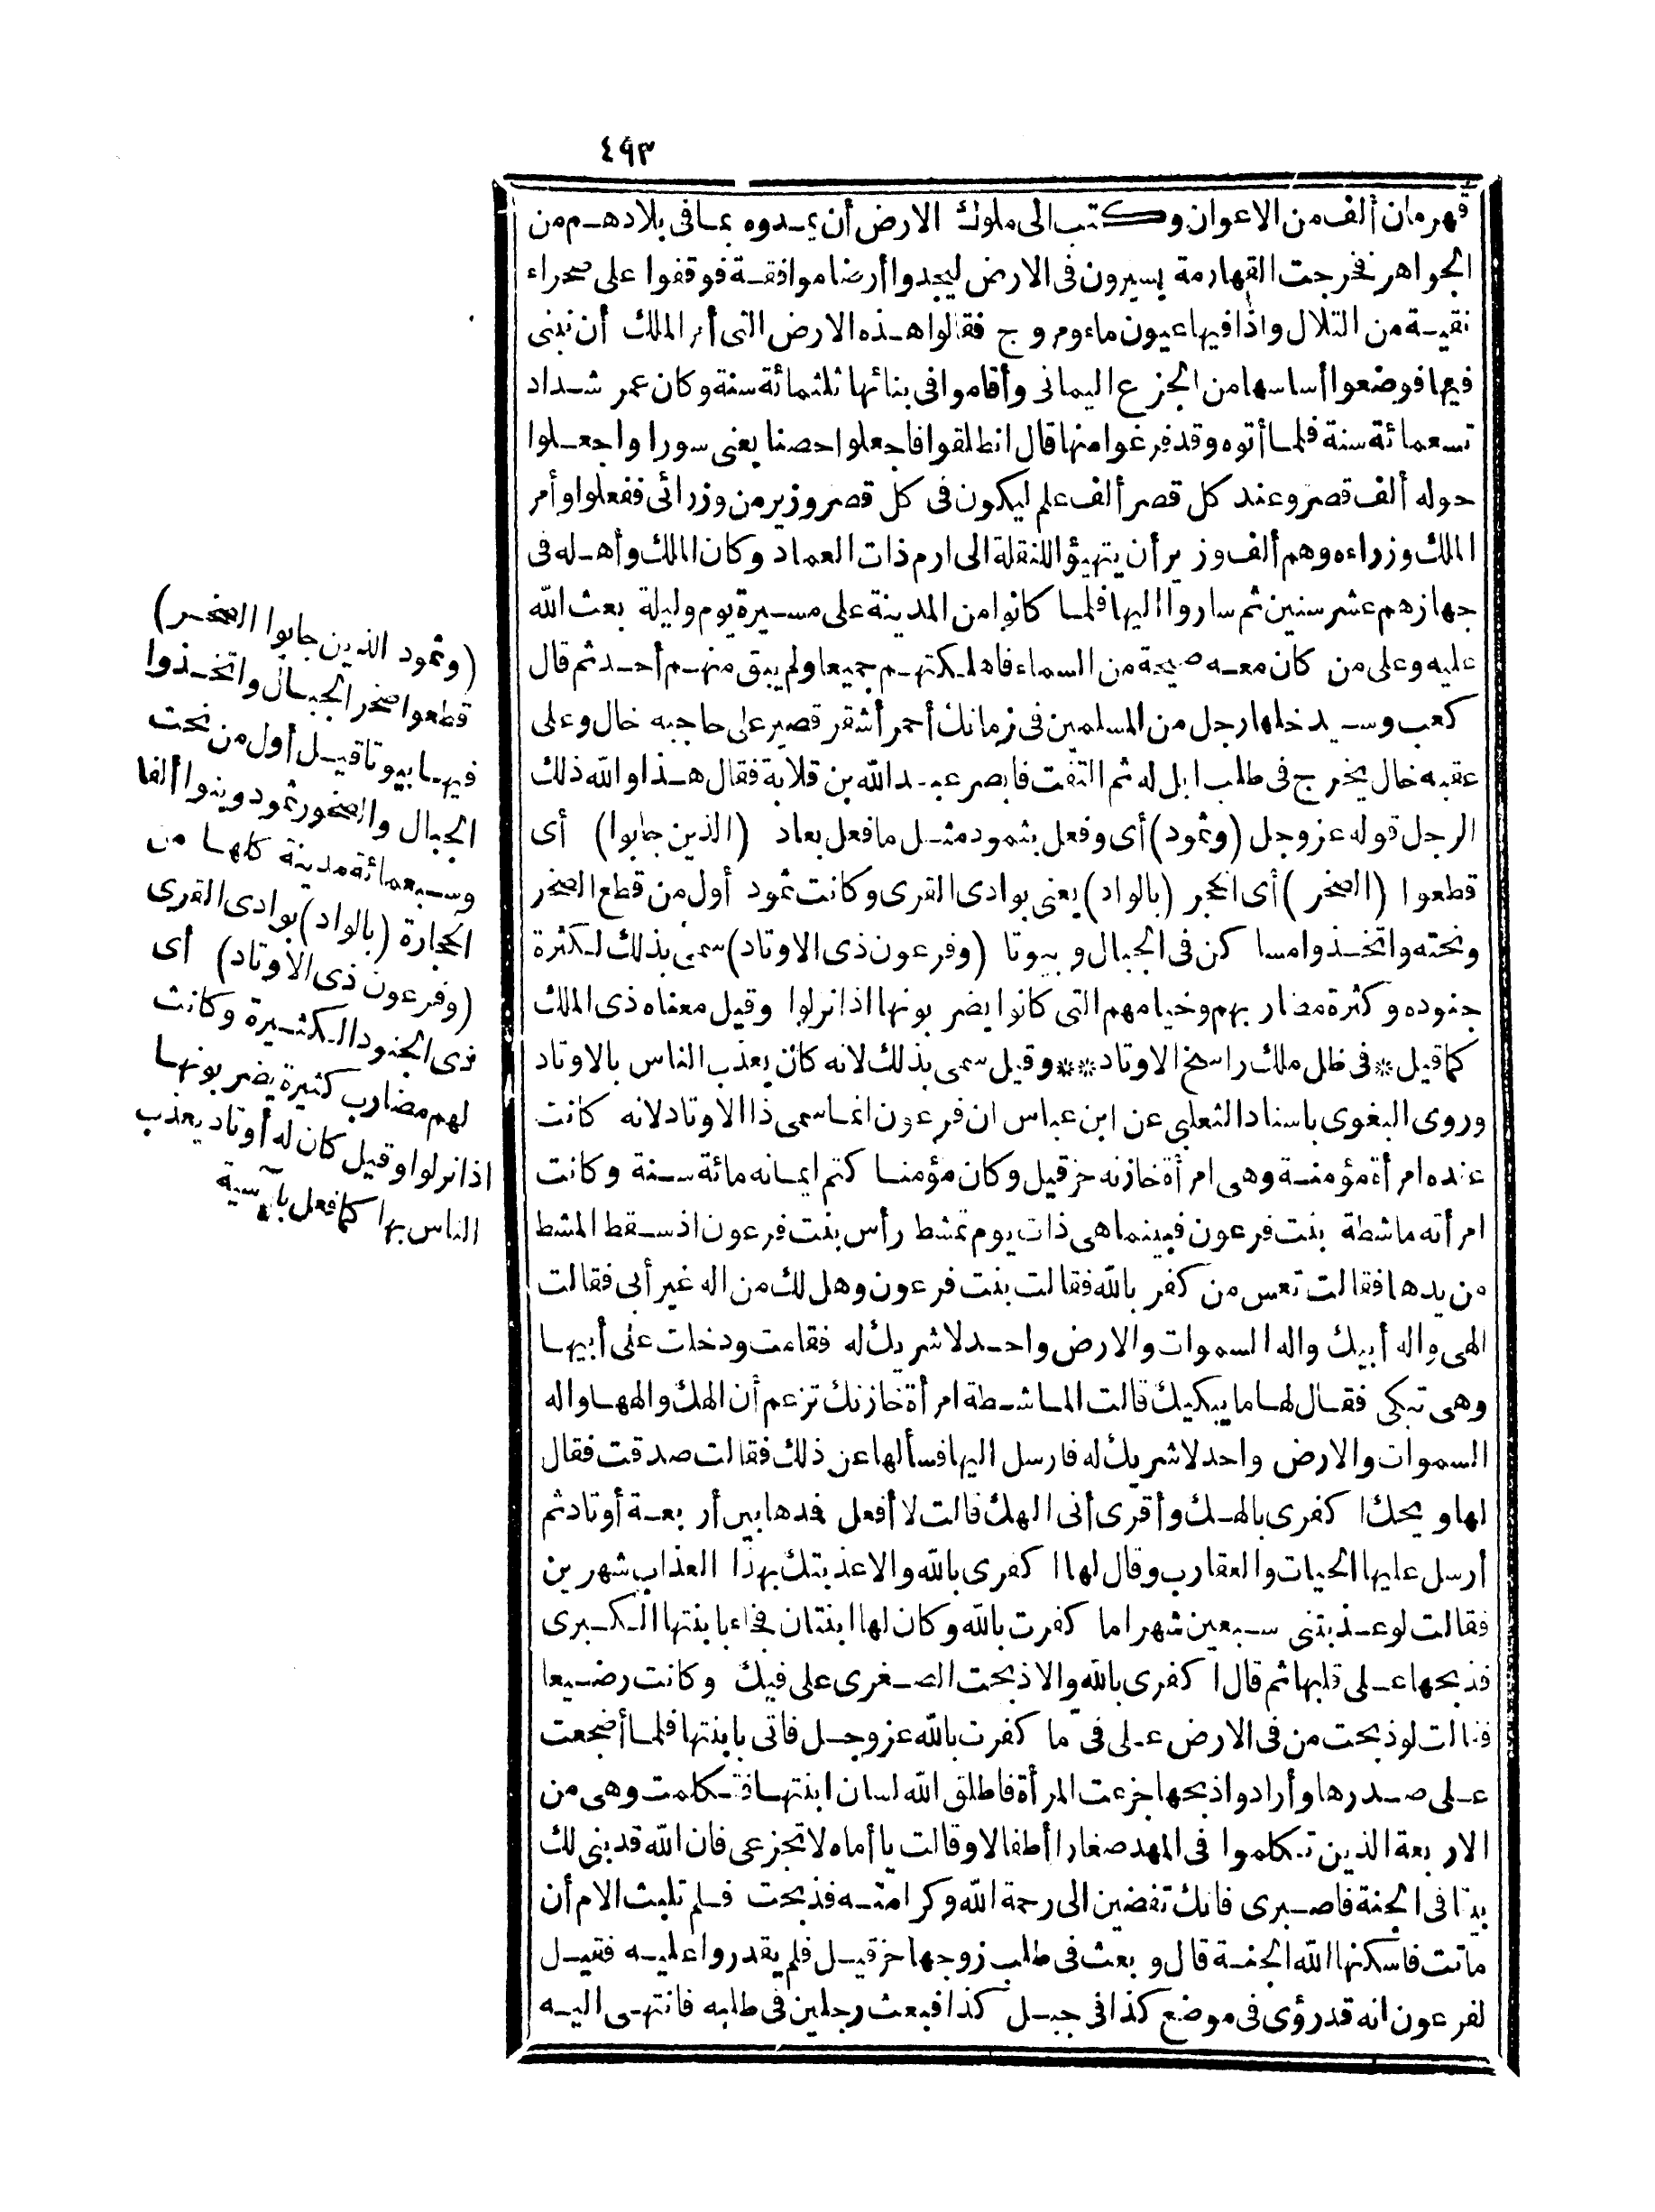 ٤٩٣
قهرمان ألف من الاعوان وكتب الى ملوك الارض أن يمدوه بما فى بلادهم من
الجواهر فخرجت القهارمة يسيرون فى الارض ليجدوا أرضا موافقة فوقفوا على صحراء
نقية من التلال واذا فيها عيون ماء ومروج فقالوا هذه الارض التى أمر الملك أن نبنى
فيها فوضعوا أساسها من الجزع اليمانى وأقاموا فى بنائها ثلثمائة سنة وكان عمر شداد
تسعمائة سنة فلما أتوه وقد فرغوا منها قال انطلقوا فاجعلوا حصنا يعنى سورا واجعلوا
حوله ألف قصر وعند كل قصر ألف علم ليكون فى كل قصر وزير من وزرائى ففعلوا وأمر
الملك وزراءه وهم ألف وزير أن يتهيؤا للنقلة الى ارم ذات العماد وكان الملك وأهله فى
جهازهم عشر سنين ثم ساروا اليها فلما كانوا من المدينة على مسيرة يوم وليلة بعث الله
عليه وعلى من كان معه صيحة من السماء فاهلكتهم جميعا ولم يبق منهم أحد ثم قال
كعب وسيدخلها رجل من المسلمين فى زمانك أحمر أشقر قصير على حاجبه خال وعلى
عقبه خال يخرج فى طلب ابل له ثم التفت فابصر عبد الله بن قلابة فقال هذا والله ذلك
الرجل قوله عز وجل (وثمود) أى وفعل بثمود مثل ما فعل بعاد (الذين جابوا) أى
قطعوا (الصخر) أى الحجر (بالواد) يعنى بوادى القرى وكانت ثمود أول من قطع الصخر
ونحته واتخذوا مساكن فى الجبال وبيوتا (وفرعون ذى الاوتاد) سمى بذلك لكثرة
جنوده وكثرة مضاربهم وخيامهم التى كانوا يضربونها اذا نزلوا وقيل معناه ذى الملك
كما قيل * فى ظل ملك راسخ الاوتاد ** وقيل سمى بذلك لانه كان يعذب الناس بالاوتاد
وروى البغوى باسناد الثعلبى عن ابن عباس ان فرعون انما سمى ذا الاوتاد لانه كانت
عنده امرأة مؤمنة وهى امرأة خازنه حزقيل وكان مؤمنا كتم ايمانه مائة سنة وكانت
امرأته ماشطة بنت فرعون فبينما هى ذات يوم تمشط رأس بنت فرعون اذ سقط المشط
من يدها فقالت تعس من كفر بالله فقالت بنت فرعون وهل لك من اله غير أبى فقالت
الهى واله أبيك واله السموات والارض واحد لا شريك له فقامت ودخلت على أبيها
وهى تبكى فقال لها ما يبكيك قالت الماشطة امرأة خازنك تزعم أن الهك والهها واله
السموات والارض واحد لا شريك له فارسل اليها فسألها عن ذلك فقالت صدقت فقال
لها ويحك اكفرى بالهك وأقرى أنى الهك قالت لا أفعل فمدها بين أربعة أوتاد ثم
أرسل عليها الحيات والعقارب وقال لها اكفرى بالله والا عذبتك بهذا العذاب شهرين
فقالت لو عذبتنى سبعين شهرا ما كفرت بالله وكان لها ابنتان فجاء بابنتها الكبرى
فذبحها على قلبها ثم قال اكفرى بالله والا ذبحت الصغرى على فيك وكانت رضيعا
فقالت لو ذبحت من فى الارض على فى ما كفرت بالله عز وجل فاتى بابنتها فلما أضجعت
على صدرها وأرادوا ذبحها جزعت المرأة فاطلق الله لسان ابنتها فتكلمت وهى من
الاربعة الذين تكلموا فى المهد صغارا أطفالا وقالت يا أماه لا تجزعى فان الله قد بنى لك
بيتا فى الجنة فاصبرى فانك تفضين الى رحمة الله وكرامته فذبحت فلم تلبث الام أن
ماتت فاسكنها الله الجنة قال وبعث فى طلب زوجها حزقيل فلم يقدروا عليه فقيل
لفرعون انه قد رؤى فى موضع كذا فى جبل كذا فبعث رجلين فى طلبه فانتهى اليه
(وثمود الذين جابوا الصخر)
قطعوا صخر الجبال واتخذوا
فيها بيوتا قيل أول من نحت
الجبال والصخور ثمود وبنوا ألفا
وسبعمائة مدينة كلها من
الحجارة (بالواد) بوادى القرى
(وفرعون ذى الاوتاد) أى
ذى الجنود الكثيرة وكانت
لهم مضارب كثيرة يضربونها
اذا نزلوا وقيل كان له أوتاد يعذب
الناس بها كما فعل بآسية